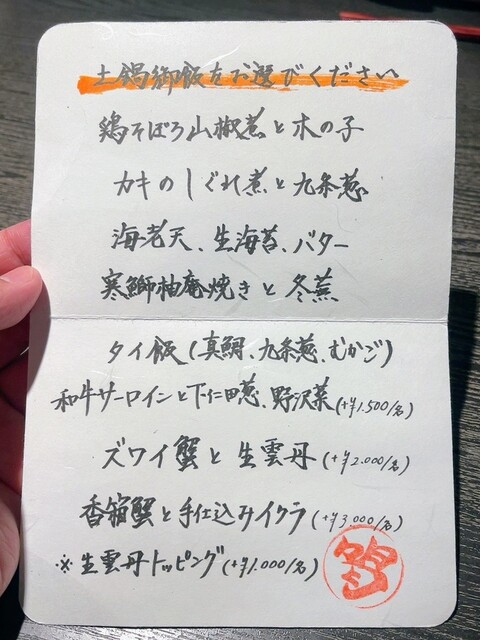 土鍋御飯をお選びください
鶏そぼろ山椒煮と木の子
カキのしぐれ煮と九条葱
海老天、生海苔、バター
寒鰤柚庵焼きと冬蕪
タイ飯(真鯛、九条葱、むかご)
和牛サーロインと下仁田葱、野沢菜(+¥1.500/名)
ズワイ蟹と生雲丹(+¥2.000/名)
香箱蟹と手仕込みイクラ(+¥3,000/名)
※生雲丹トッピング(+¥1.000/名)